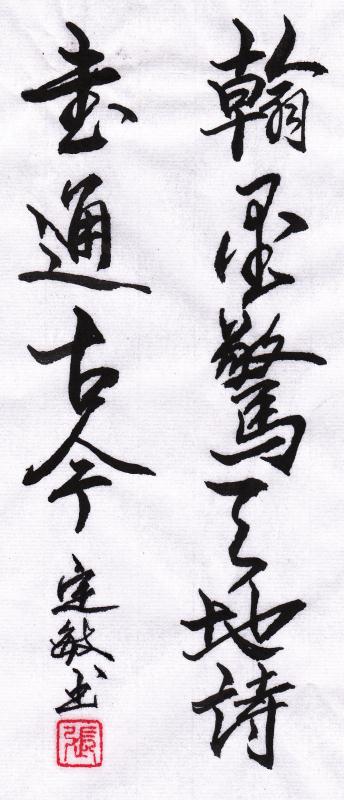 翰墨驚天地詩
書通古今
定敏书
張